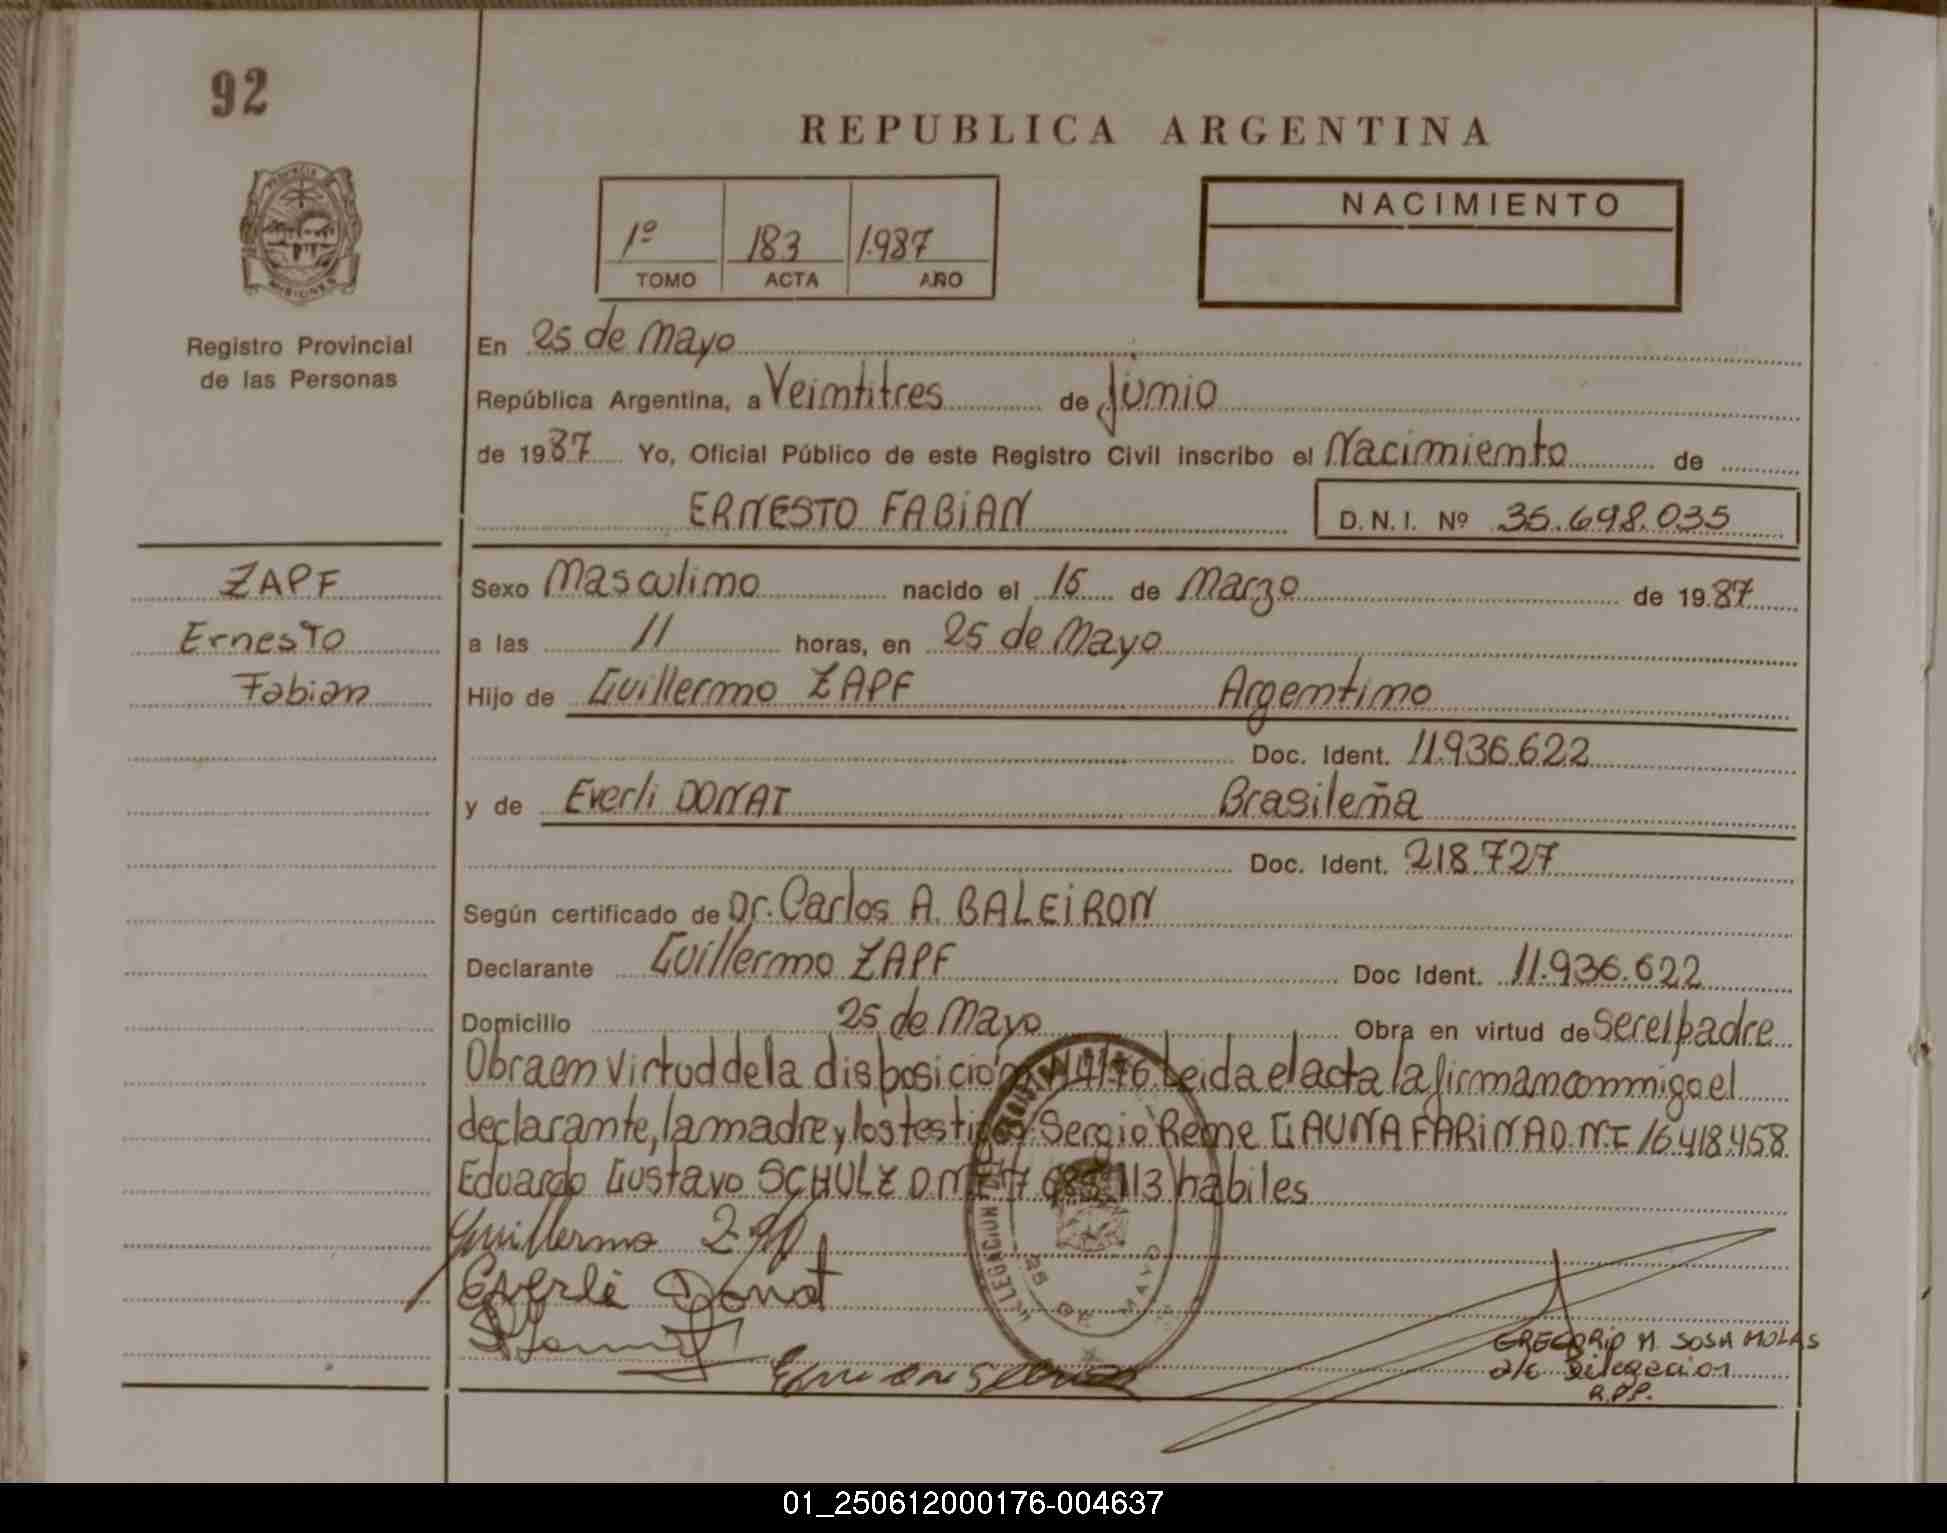 92
REPUBLICA ARGENTINA
PROVINCIA DE
MISIONES
NACIMIENTO
1º 183 1.987
TOMO ACTA AÑO
Registro Provincial
de las Personas
En 25 de Mayo
República Argentina, a Veintitres de Junio
de 1987 Yo, Oficial Público de este Registro Civil inscribo el Nacimiento de
ERNESTO FABIAN D.N.I. Nº 35.698.035
ZAPF
Ernesto
Fabian
Sexo Masculino nacido el 15 de Marzo de 1987
a las 11 horas, en 25 de Mayo
Hijo de Guillermo ZAPF Argentino
Doc. Ident. 11.936.622
y de Everli DONAT Brasileña
Doc. Ident. 218.727
Según certificado de Dr. Carlos A. BALEIRON
Declarante Guillermo ZAPF Doc Ident. 11.936.622
Domicilio 25 de Mayo Obra en virtud de Ser el padre
Obra en virtud de la disposición 14/76 Leida el acta la firman conmigo el
declarante, la madre y los testigos Sergio Rene GAUNA FARINA D.N.I 16.418.458
Eduardo Gustavo SCHULZ 113 habiles
Guillermo Zapf
Everli Donat
25 DE MAYO
GREGORIO M. SOSA MOLAS
a/c Delegacion
R.P.P.
01_250612000176-004637